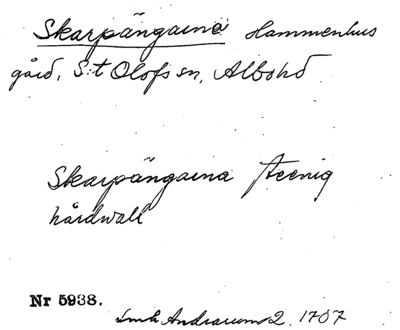 Skarpängarna Hammenhus
gård, S:t Olofs sn, Albohd
Skarpängarna steenig
hårdwall
Nr 5938.
Lmh Andrarum 2. 1707